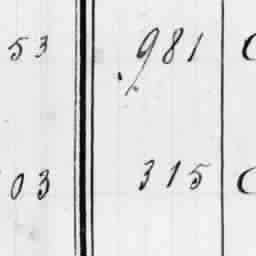 53 981
03 315